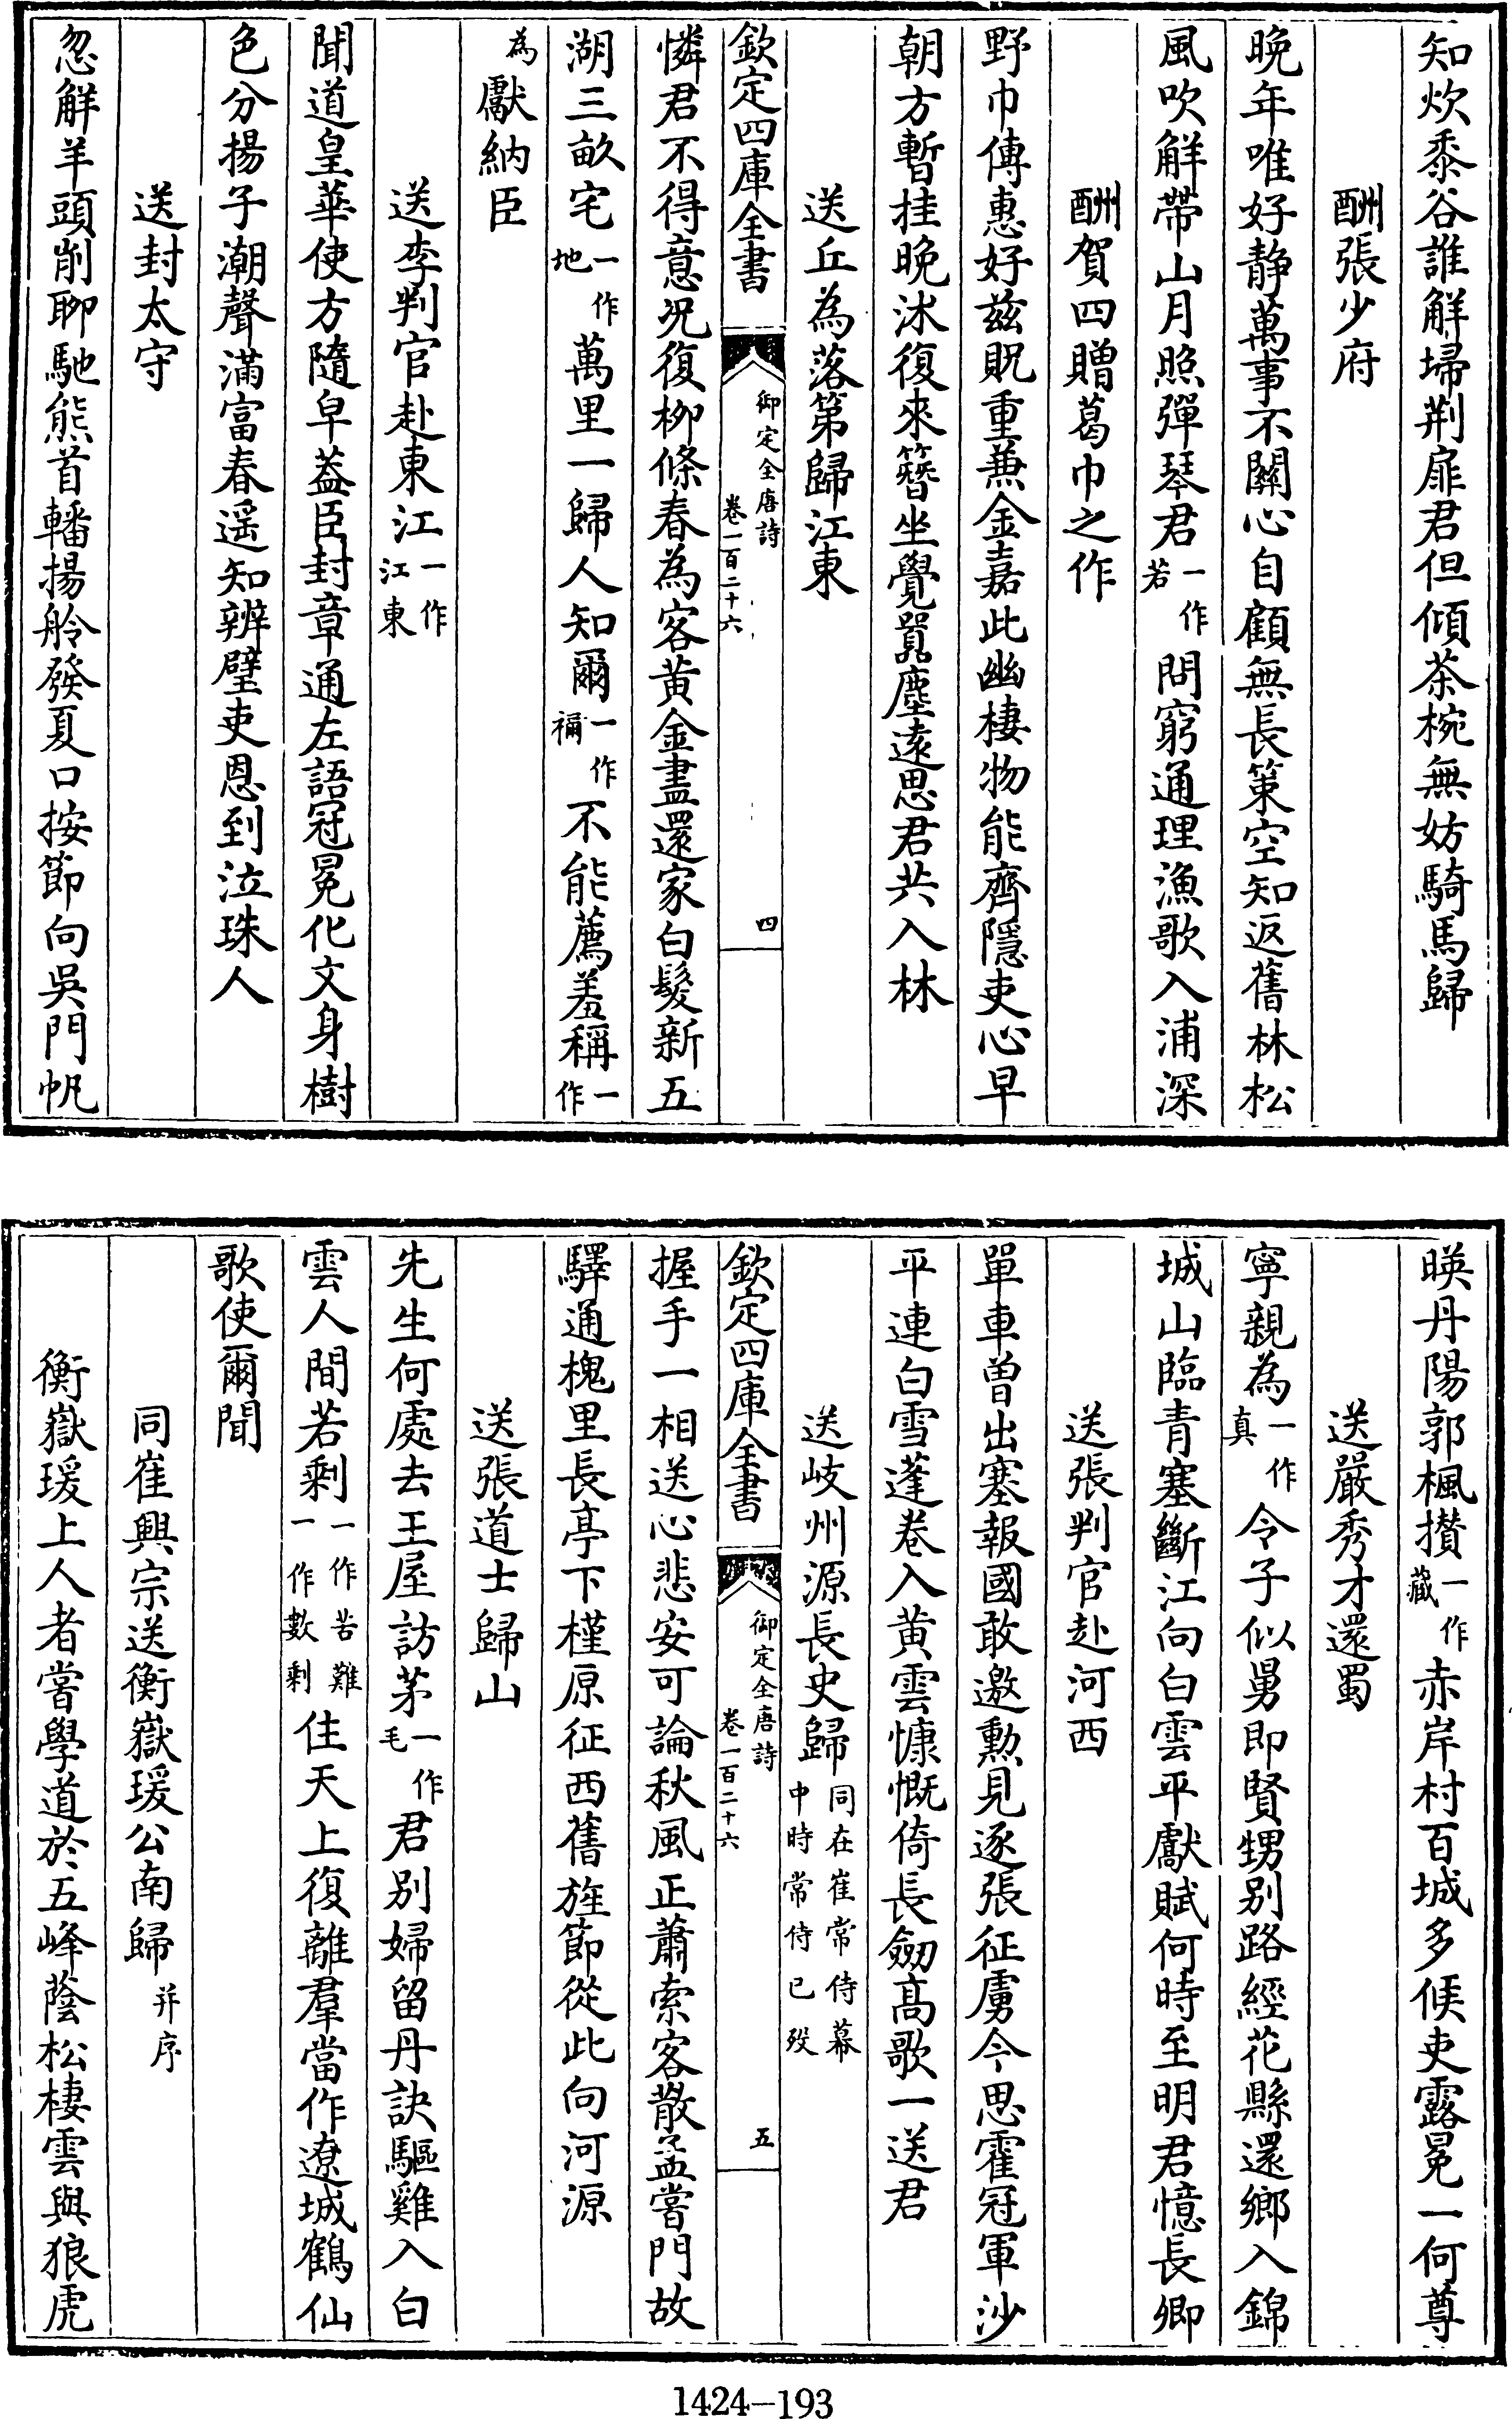 知炊黍谷誰解埽荆扉君但傾茶椀無妨騎馬歸
酬張少府
晚年唯好静萬事不關心自顧無長策空知返舊林松
風吹解帶山月照彈琴君一作若問窮通理漁歌入浦深
酬賀四贈葛巾之作
野巾傳惠好兹貺重兼金嘉此幽棲物能齊隱吏心早
朝方暫挂晚沐復來簪坐覺囂塵遠思君共入林
送丘為落第歸江東
欽定四庫全書
御定全唐詩
卷一百二十六
四
憐君不得意况復柳條春為客黄金盡還家白髮新五
湖三畝宅一作地萬里一歸人知爾一作禰不能薦羞稱一作
為獻納臣
送李判官赴東江一作江東
聞道皇華使方隨皁蓋臣封章通左語冠冕化文身樹
色分揚子潮聲滿富春遥知辨璧吏恩到泣珠人
送封太守
忽解羊頭削聊馳熊首轓揚舲發夏口按節向吳門帆
暎丹陽郭楓攢一作藏赤岸村百城多候吏露冕一何尊
送嚴秀才還蜀
寧親為一作真令子似舅即賢甥别路經花縣還鄉入錦
城山臨青塞斷江向白雲平獻賦何時至明君憶長卿
送張判官赴河西
單車曾出塞報國敢邀勲見逐張征虜今思霍冠軍沙
平連白雪蓬卷入黄雲慷慨倚長劒高歌一送君
送岐州源長史歸同在崔常侍幕中時常侍已殁
欽定四庫全書
御定全唐詩
卷一百二十六
五
握手一相送心悲安可論秋風正蕭索客散孟嘗門故
驛通槐里長亭下槿原征西舊旌節從此向河源
送張道士歸山
先生何處去王屋訪茅一作毛君别婦留丹訣驅雞入白
雲人間若剩一作苦難一作數剩住天上復離羣當作遼城鶴仙
歌使爾聞
同崔興宗送衡嶽瑗公南歸并序
衡嶽瑗上人者嘗學道於五峰蔭松棲雲與狼虎
1424-193